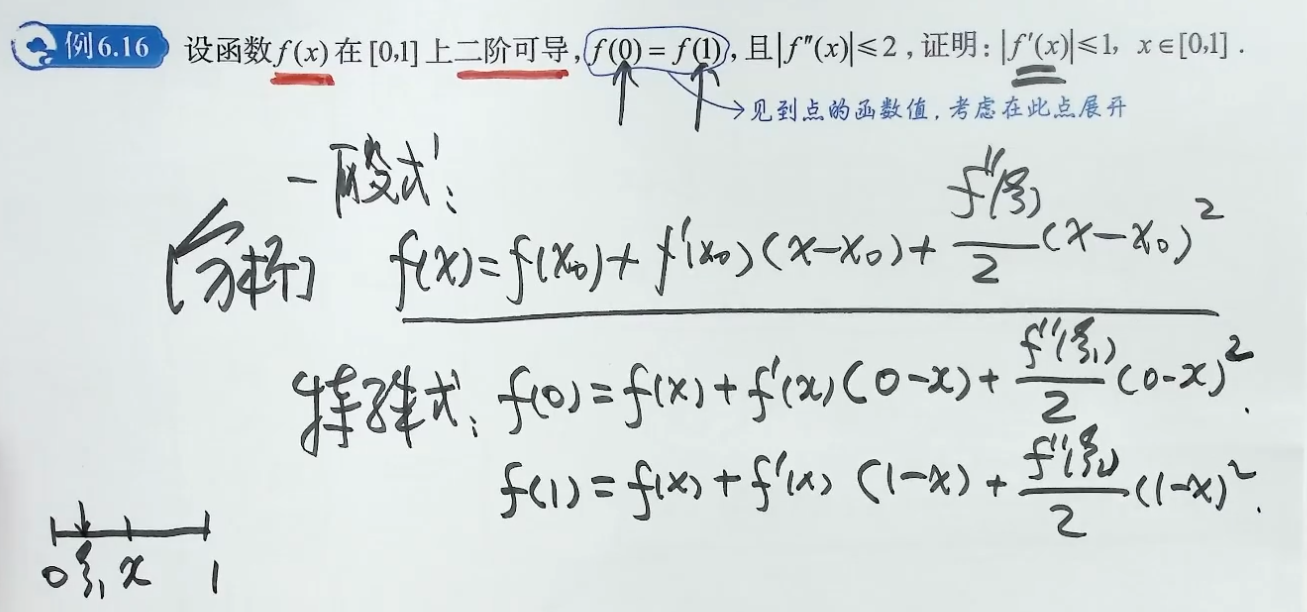 例6.16 设函数f(x)在[0,1]上二阶可导,f(0)=f(1),且|f″(x)|≤2,证明:|f′(x)|≤1, x∈[0,1].
见到点的函数值,考虑在此点展开
一般式:
[分析] f(x)=f(x₀)+f′(x₀)(x-x₀)+f″(ξ)/2(x-x₀)²
特殊式: f(0)=f(x)+f′(x)(0-x)+f″(ξ₁)/2(0-x)².
f(1)=f(x)+f′(x)(1-x)+f″(ξ₂)/2(1-x)².
0 ξ₁ x 1